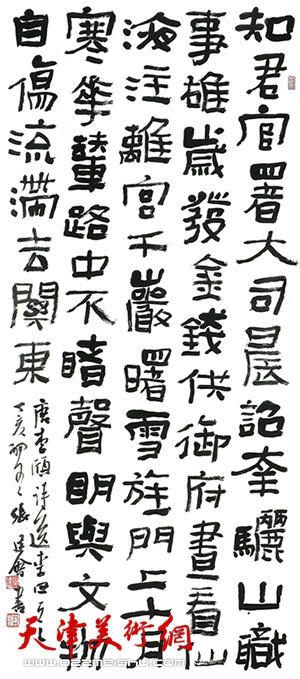 知君官署大司農詔幸驪山職
事雄歲發金錢供御府晝看仙
液注離宮千巖曙雪旌門上十月
寒華輦路中不睹聲明與文物
自傷流滯去關東
唐李頎詩送李回
丁亥 張建會書
天津美術網
www.022meishu.com